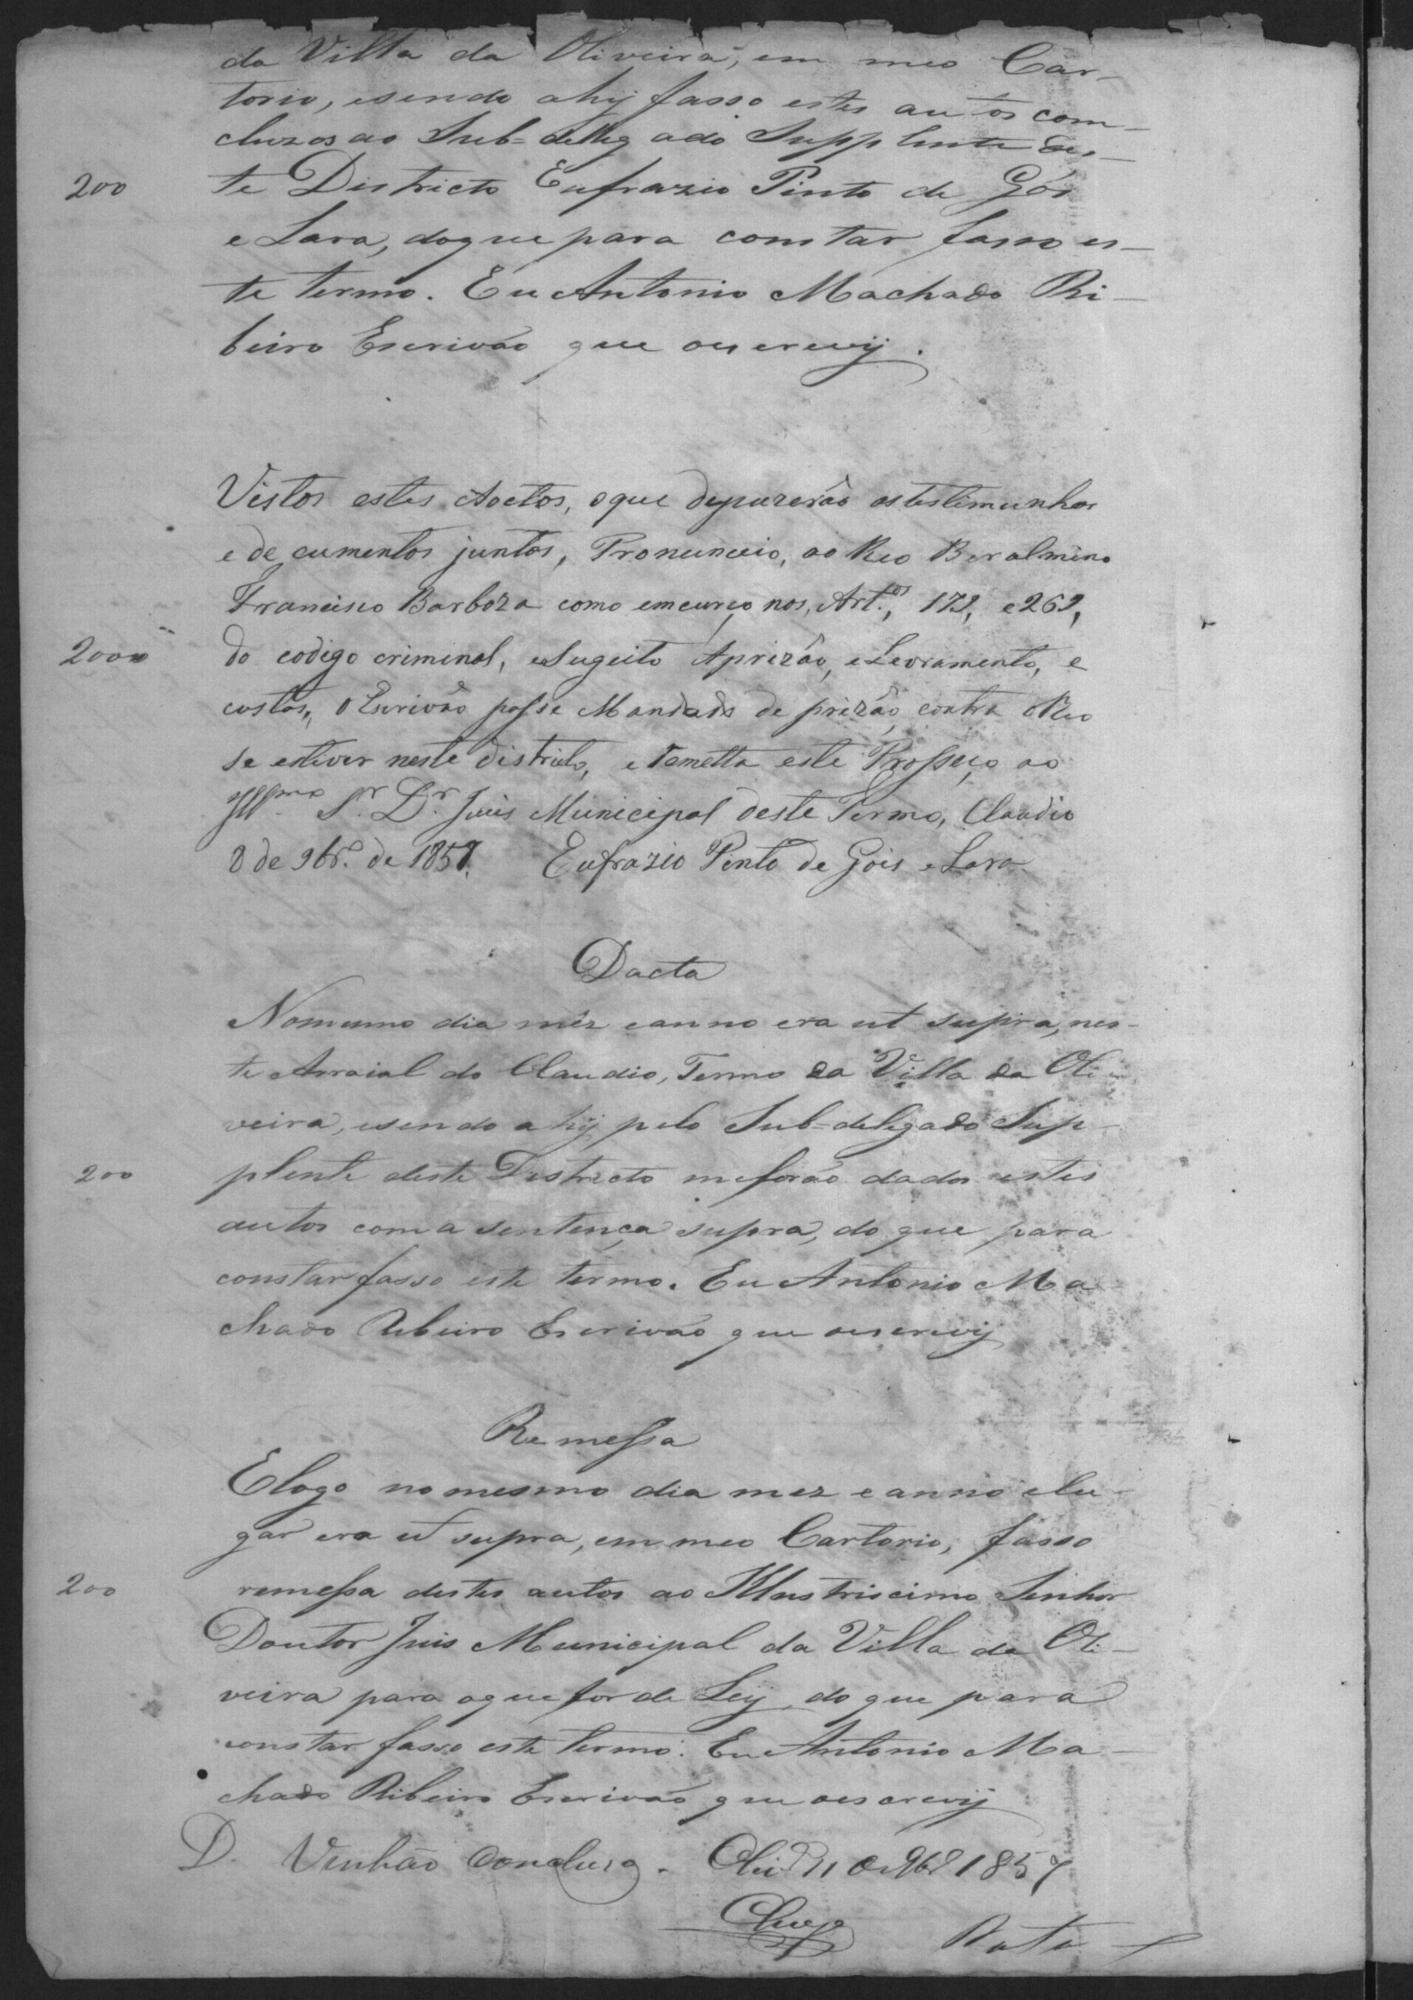 da Villa da Oliveira, em meo Car-
torio, esendo ahij fasso estes autos com-
cluzos ao Sub=delleg ado Supplente des-
200 te Districto Eufrazio Pinto de Góis
e Lara, doque para constar fasso es-
te termo. Eu Antonio Machado Ri-
beiro Escrivão que oescrevij.
Vistos estes Aoctos, oque depuzerão astestimunhas
e de cumentos juntos, Pronuncio, ao Reo Beralmino
Francisco Barboza como emcurço nos, Art.os, 172, e 262,
2000 do codigo criminal, eSugeito Aprizão, eLevramento, e
custas, O Escrivão passe Mandado de prizão, contra oReo
se estiver neste districto, e Rametta este Prosseço ao
Illmo Sr. Dr. Juis Municipal deste Termo, Claudio
8 de 9br.o de 1857. Eufrazio Pinto de Gois e Lara
Dacta
Nomesmo dia mêz eanno era ut supra, nes-
te Arraial do Claudio, Termo da Villa da Oli-
veira, esendo ahij pelo Sub=delegado Sup-
200 plente deste Districto meforão dados estes
autos coma sentença supra, do que para
constar fasso este termo. Eu Antonio Ma-
chado Ribeiro Escrivão que oescrevij
Remessa
Elogo nomesmo dia mez eanno elu-
gar era ut supra, em meo Cartorio, fasso
200 remessa destes autos ao Illustriscimo Senhor
Doutor Juis Municipal da Villa de Oli-
veira para oque for de Ley, do que para
constar fasso este termo. Eu Antonio Ma-
chado Ribeiro Escrivão que oescrevij
D. Venhão Concluzo. Oli.a 11 de 9br.o 1857